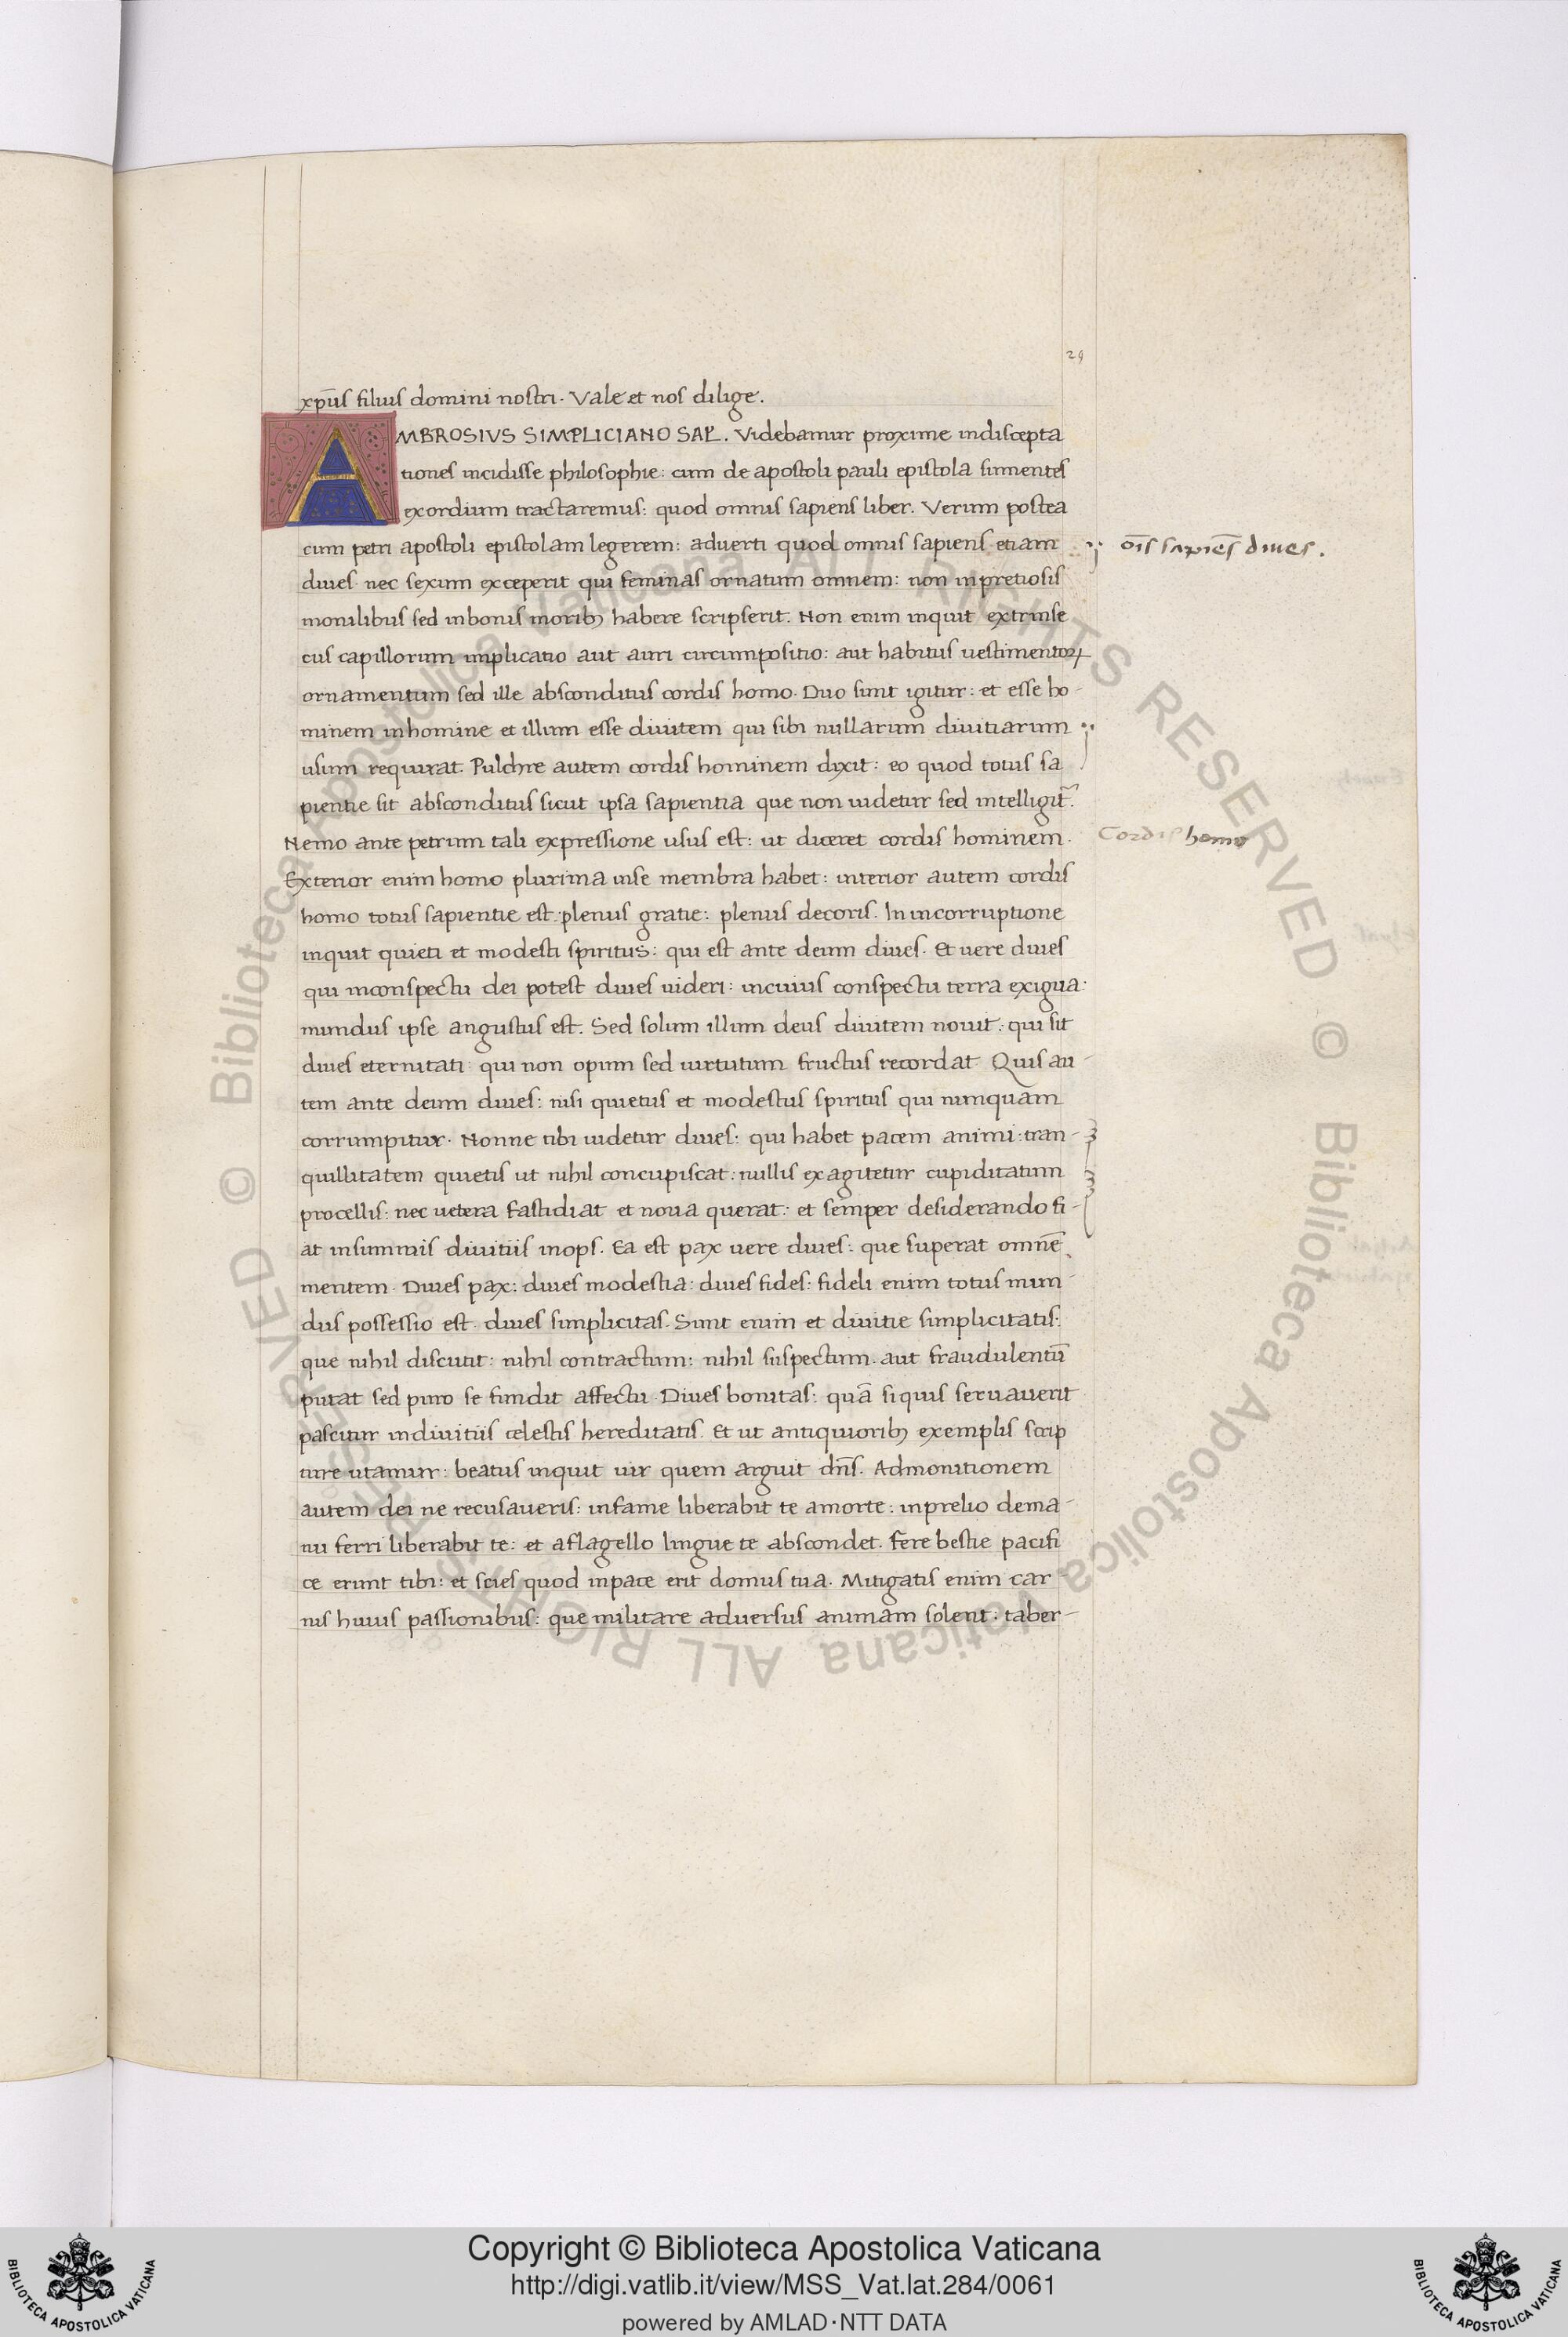 29
xp̄us filius domini nostri. Vale et nos dilige.
AMBROSIVS SIMPLICIANO SAL̄. Videbamur proxime indiscepta
tiones incidisse philosophie: cum de apostoli pauli epistola sumentes
exordium tractaremus: quod omnis sapiens liber. Verum postea
cum petri apostoli epistolam legerem: adverti quod omnis sapiens etiam
diues nec sexum exceperit qui feminas ornatum omnem: non inpretiosis
monilibus sed inbonis moribꝫ habere scripserit. Non enim inquit extrinse
cus capillorum implicatio aut auri circumpositio: aut habitus uestimentoꝝ
ornamentum sed ille absconditus cordis homo. Duo sunt igitur: et esse ho-
minem inhomine et illum esse diuitem qui sibi nullarum diuitiarum
usum requirat. Pulchre autem cordis hominem dixit: eo quod totus sa
pientie sit absconditus sicut ipsa sapientia que non uidetur sed intelligit᷑.
Nemo ante petrum tali expressione usus est: ut diceret cordis hominem.
Exterior enim homo plurima inse membra habet: interior autem cordis
homo totus sapientie est: plenus gratie: plenus decoris. In incorruptione
inquit quieti et modesti spiritus: qui est ante deum diues. Et vere diues
qui inconspectu dei potest diues uideri: incuius conspectu terra exigua:
mundus ipse angustus est. Sed solum illum deus diuitem nouit: qui sit
diues eternitati: qui non opum sed uirtutum fructus recordat. Quis au-
tem ante deum diues: nisi quietus et modestus spiritus qui nunquam
corrumpitur. Nonne tibi uidetur diues: qui habet pacem animi: tran-
quillitatem quietis ut nihil concupiscat: nullis exagitetur cupiditatum
procellis: nec uetera fastidiat et noua querat: et semper desiderando fi-
at insummis diuitiis inops. Ea est pax uere diues: que superat omnē
mentem. Diues pax: diues modestia: diues fides: fideli enim totus mun-
dus possessio est. diues simplicitas. Sunt enim et diuitie simplicitatis:
que nihil discutit: nihil contractum: nihil suspectum. aut fraudulentū
putat sed puro se fundit affectu. Diues bonitas: quā siquis seruauerit
pascitur indiuitiis celestis hereditatis. Et ut antiquioribꝫ exemplis scrip
ture utamur: beatus inquit uir quem arguit dn̄s. Admonitionem
autem dei ne recusaueris: infame liberabit te amorte: inprelio dema-
nu ferri liberabit te: et aflagello lingue te abscondet. Fere bestie pacifi
ce erunt tibi: et scies quod inpace erit domus tua. Mitigatis enim car-
nis huius passionibus: que militare aduersus animam solent: taber-
oīs sapiēs diues.
Cordis homo
© Biblioteca Apostolica Vaticana ALL RIGHTS RESERVED © Biblioteca Apostolica Vaticana ALL RIGHTS RESERVED
Copyright © Biblioteca Apostolica Vaticana
http://digi.vatlib.it/view/MSS_Vat.lat.284/0061
powered by AMLAD·NTT DATA
BIBLIOTECA APOSTOLICA VATICANA
BIBLIOTECA APOSTOLICA VATICANA